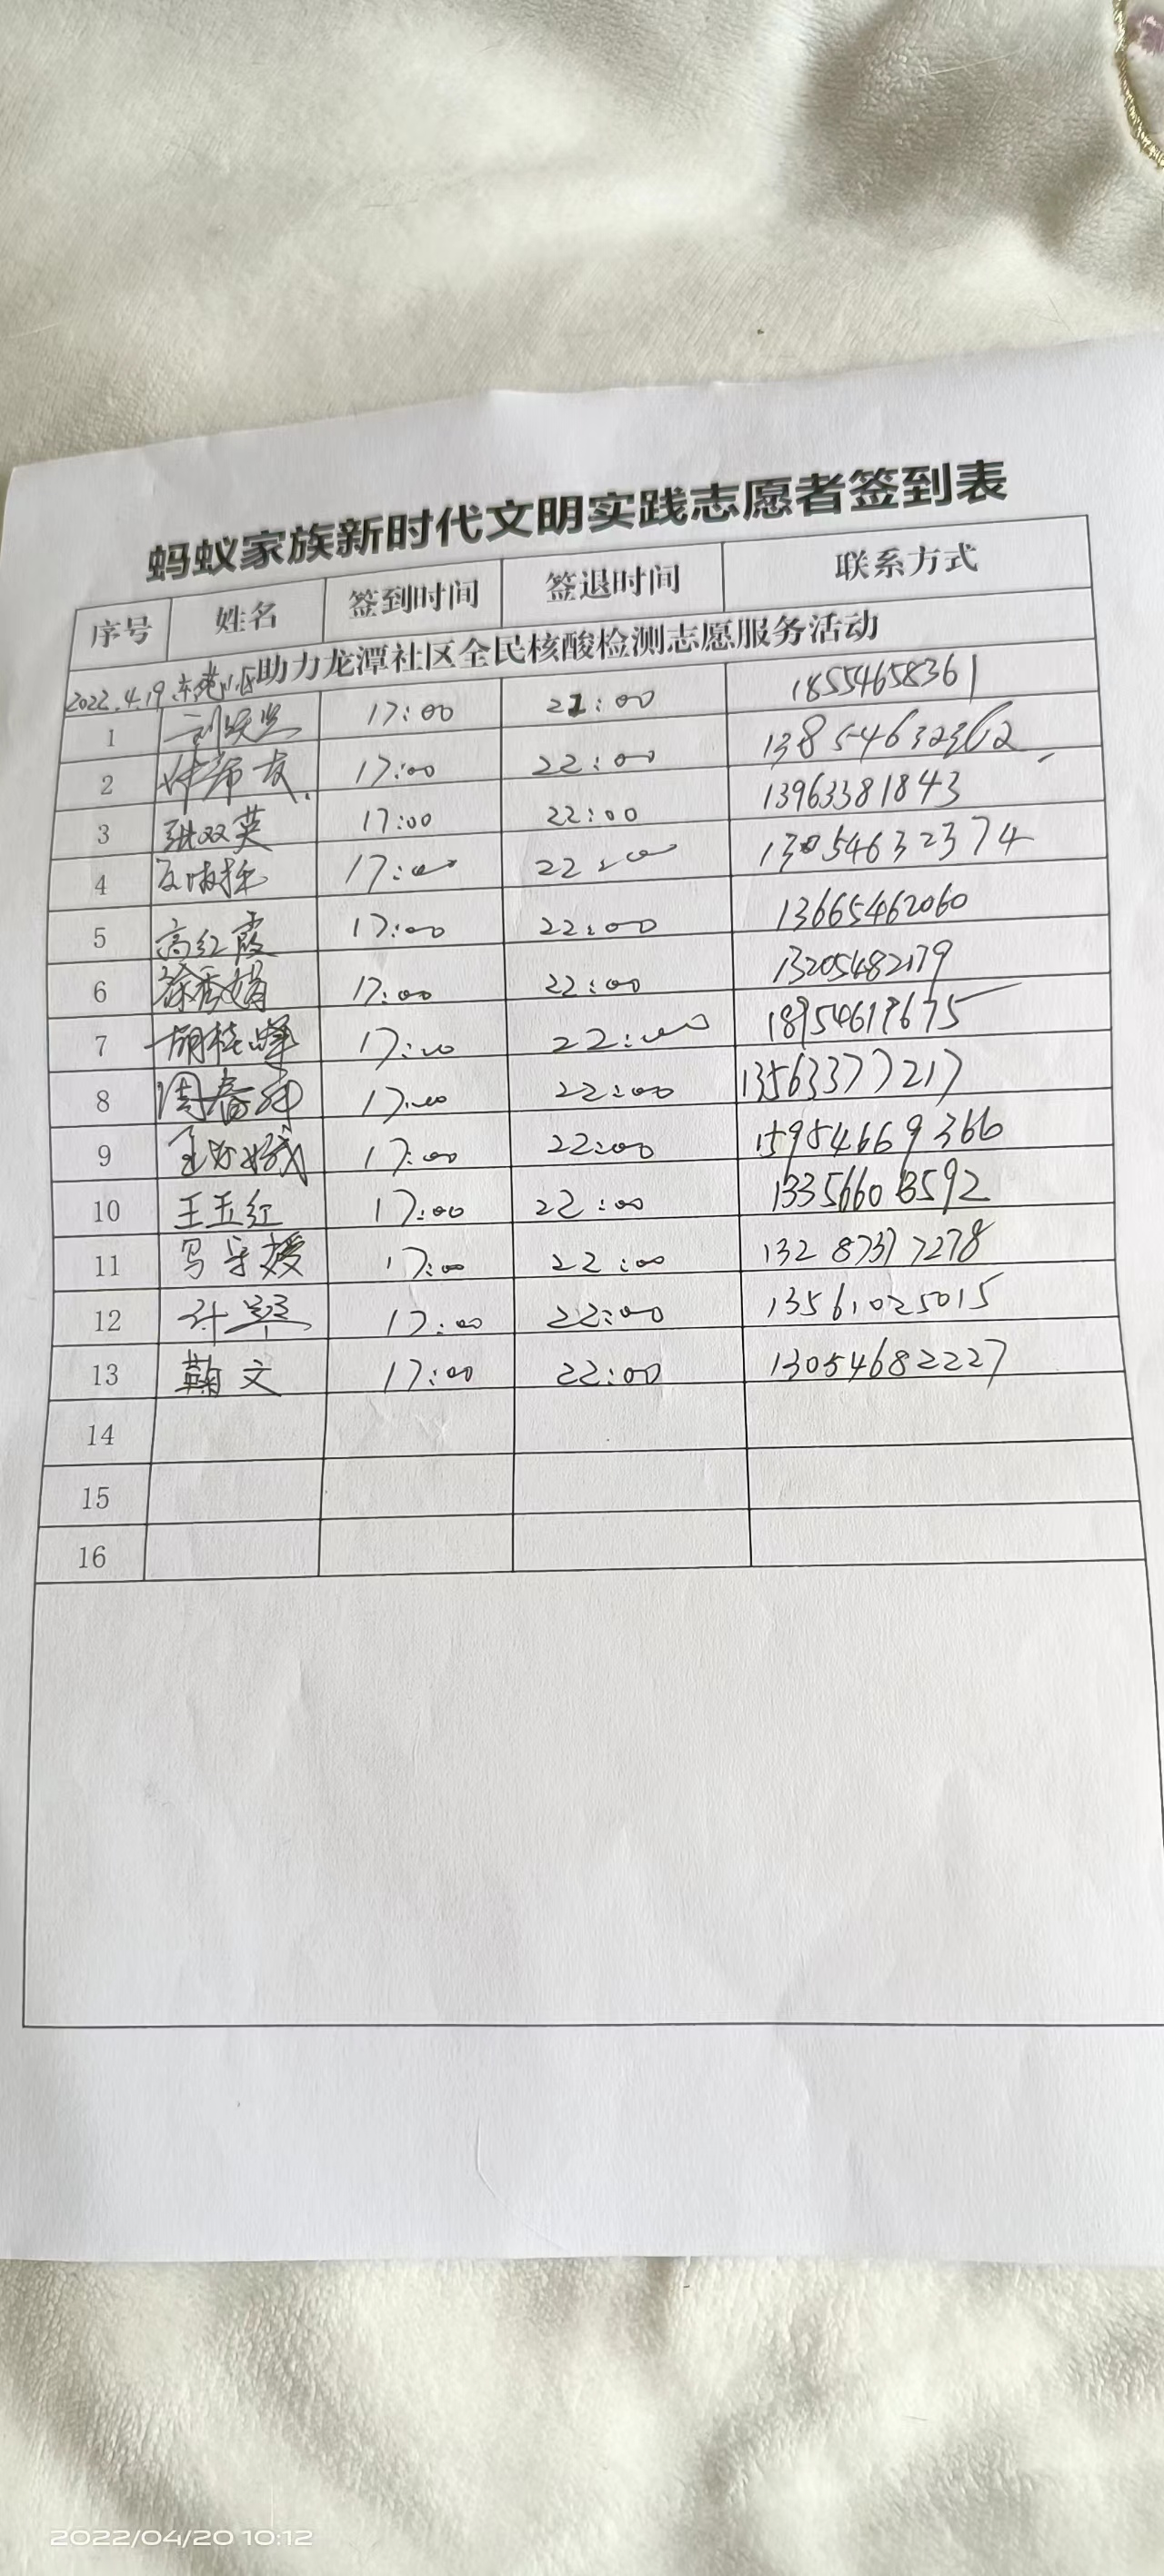 蚂蚁家族新时代文明实践志愿者签到表
序号 姓名 签到时间 签退时间 联系方式
2022.4.19 助力龙潭社区全民核酸检测志愿服务活动
1 17:00 22:00 18554658361
2 17:00 22:00 13854632362
3 张双英 17:00 22:00 13963381843
4 17:00 22:00 13054632374
5 高红霞 17:00 22:00 13665462060
6 徐秀娟 17:00 22:00 13205482179
7 胡桂峰 17:00 22:00
8 周春 17:00 22:00 13563377217
9 17:00 22:00 15954669366
10 王玉红 17:00 22:00 13356603592
11 17:00 22:00 13287377278
12 17:00 22:00 13561025015
13 鞠文 17:00 22:00 13054682227
14
15
16
2022/04/20 10:12